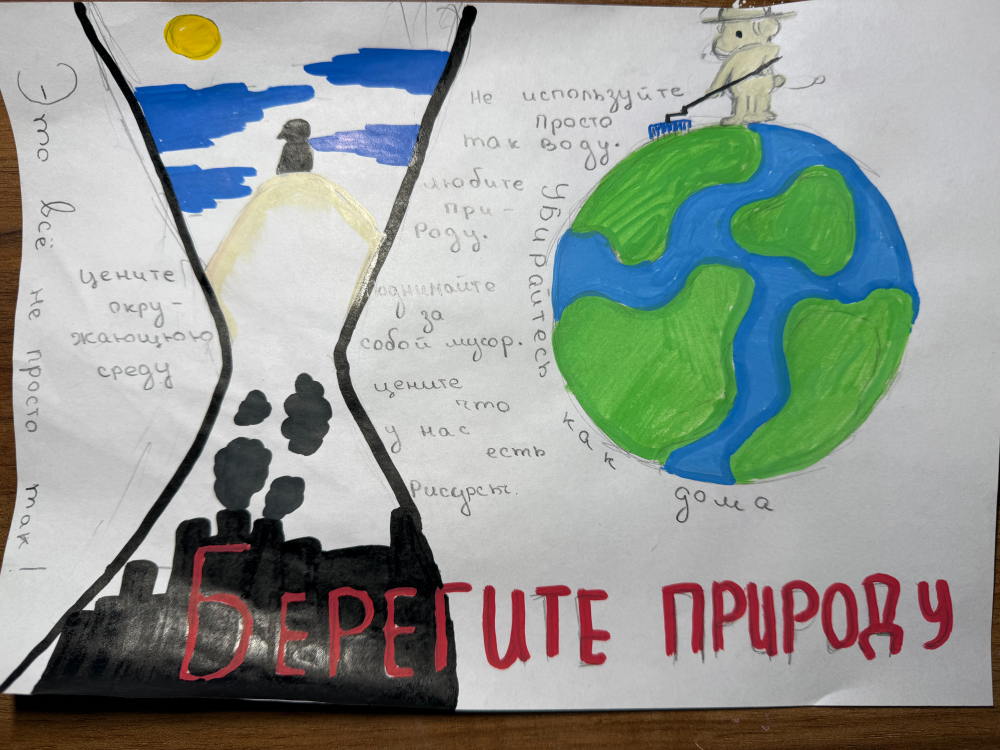 Это всё не просто так!
цените
окру-
жающюю
среду
не используйте
просто
так воду.
любите
при-
роду.
поднимайте
за
собой мусор.
цените
что
у нас
есть
Ресурсы.
Убирайтесь как дома
БЕРЕГИТЕ ПРИРОДУ